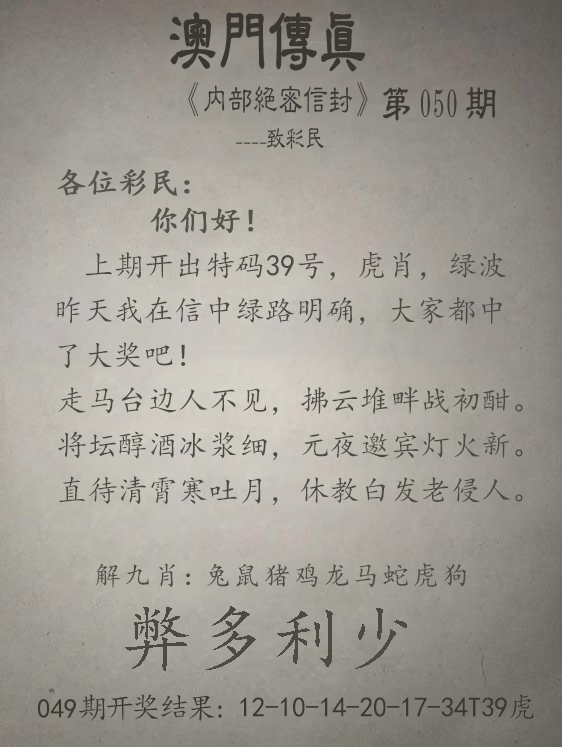 澳門傳眞
《内部絕密信封》第050期
----致彩民
各位彩民：
你们好！
上期开出特码39号，虎肖，绿波
昨天我在信中绿路明确，大家都中
了大奖吧！
走马台边人不见，拂云堆畔战初酣。
将坛醇酒冰浆细，元夜邀宾灯火新。
直待清霄寒吐月，休教白发老侵人。
解九肖：兔鼠猪鸡龙马蛇虎狗
弊多利少
049期开奖结果：12-10-14-20-17-34T39虎